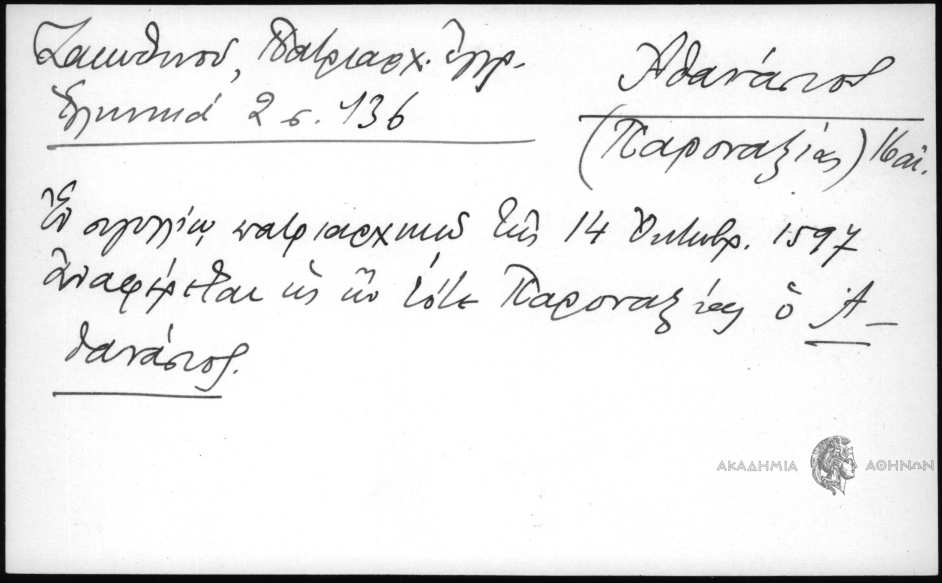 Ζακυθηνοῦ, Πατριαρχ. ἔγγρ.
Ἑλληνικά 2 σ. 136
Ἀθανάσιος
(Παροναξίας) 16 αἰ.
Ἐν σιγιλλίῳ πατριαρχικῷ τῆς 14 Ὀκτωβρ. 1597
ἀναφέρεται ὡς ὢν τότε Παροναξίας ὁ Ἀ-
θανάσιος.
ΑΚΑΔΗΜΙΑ ΑΘΗΝΩΝ